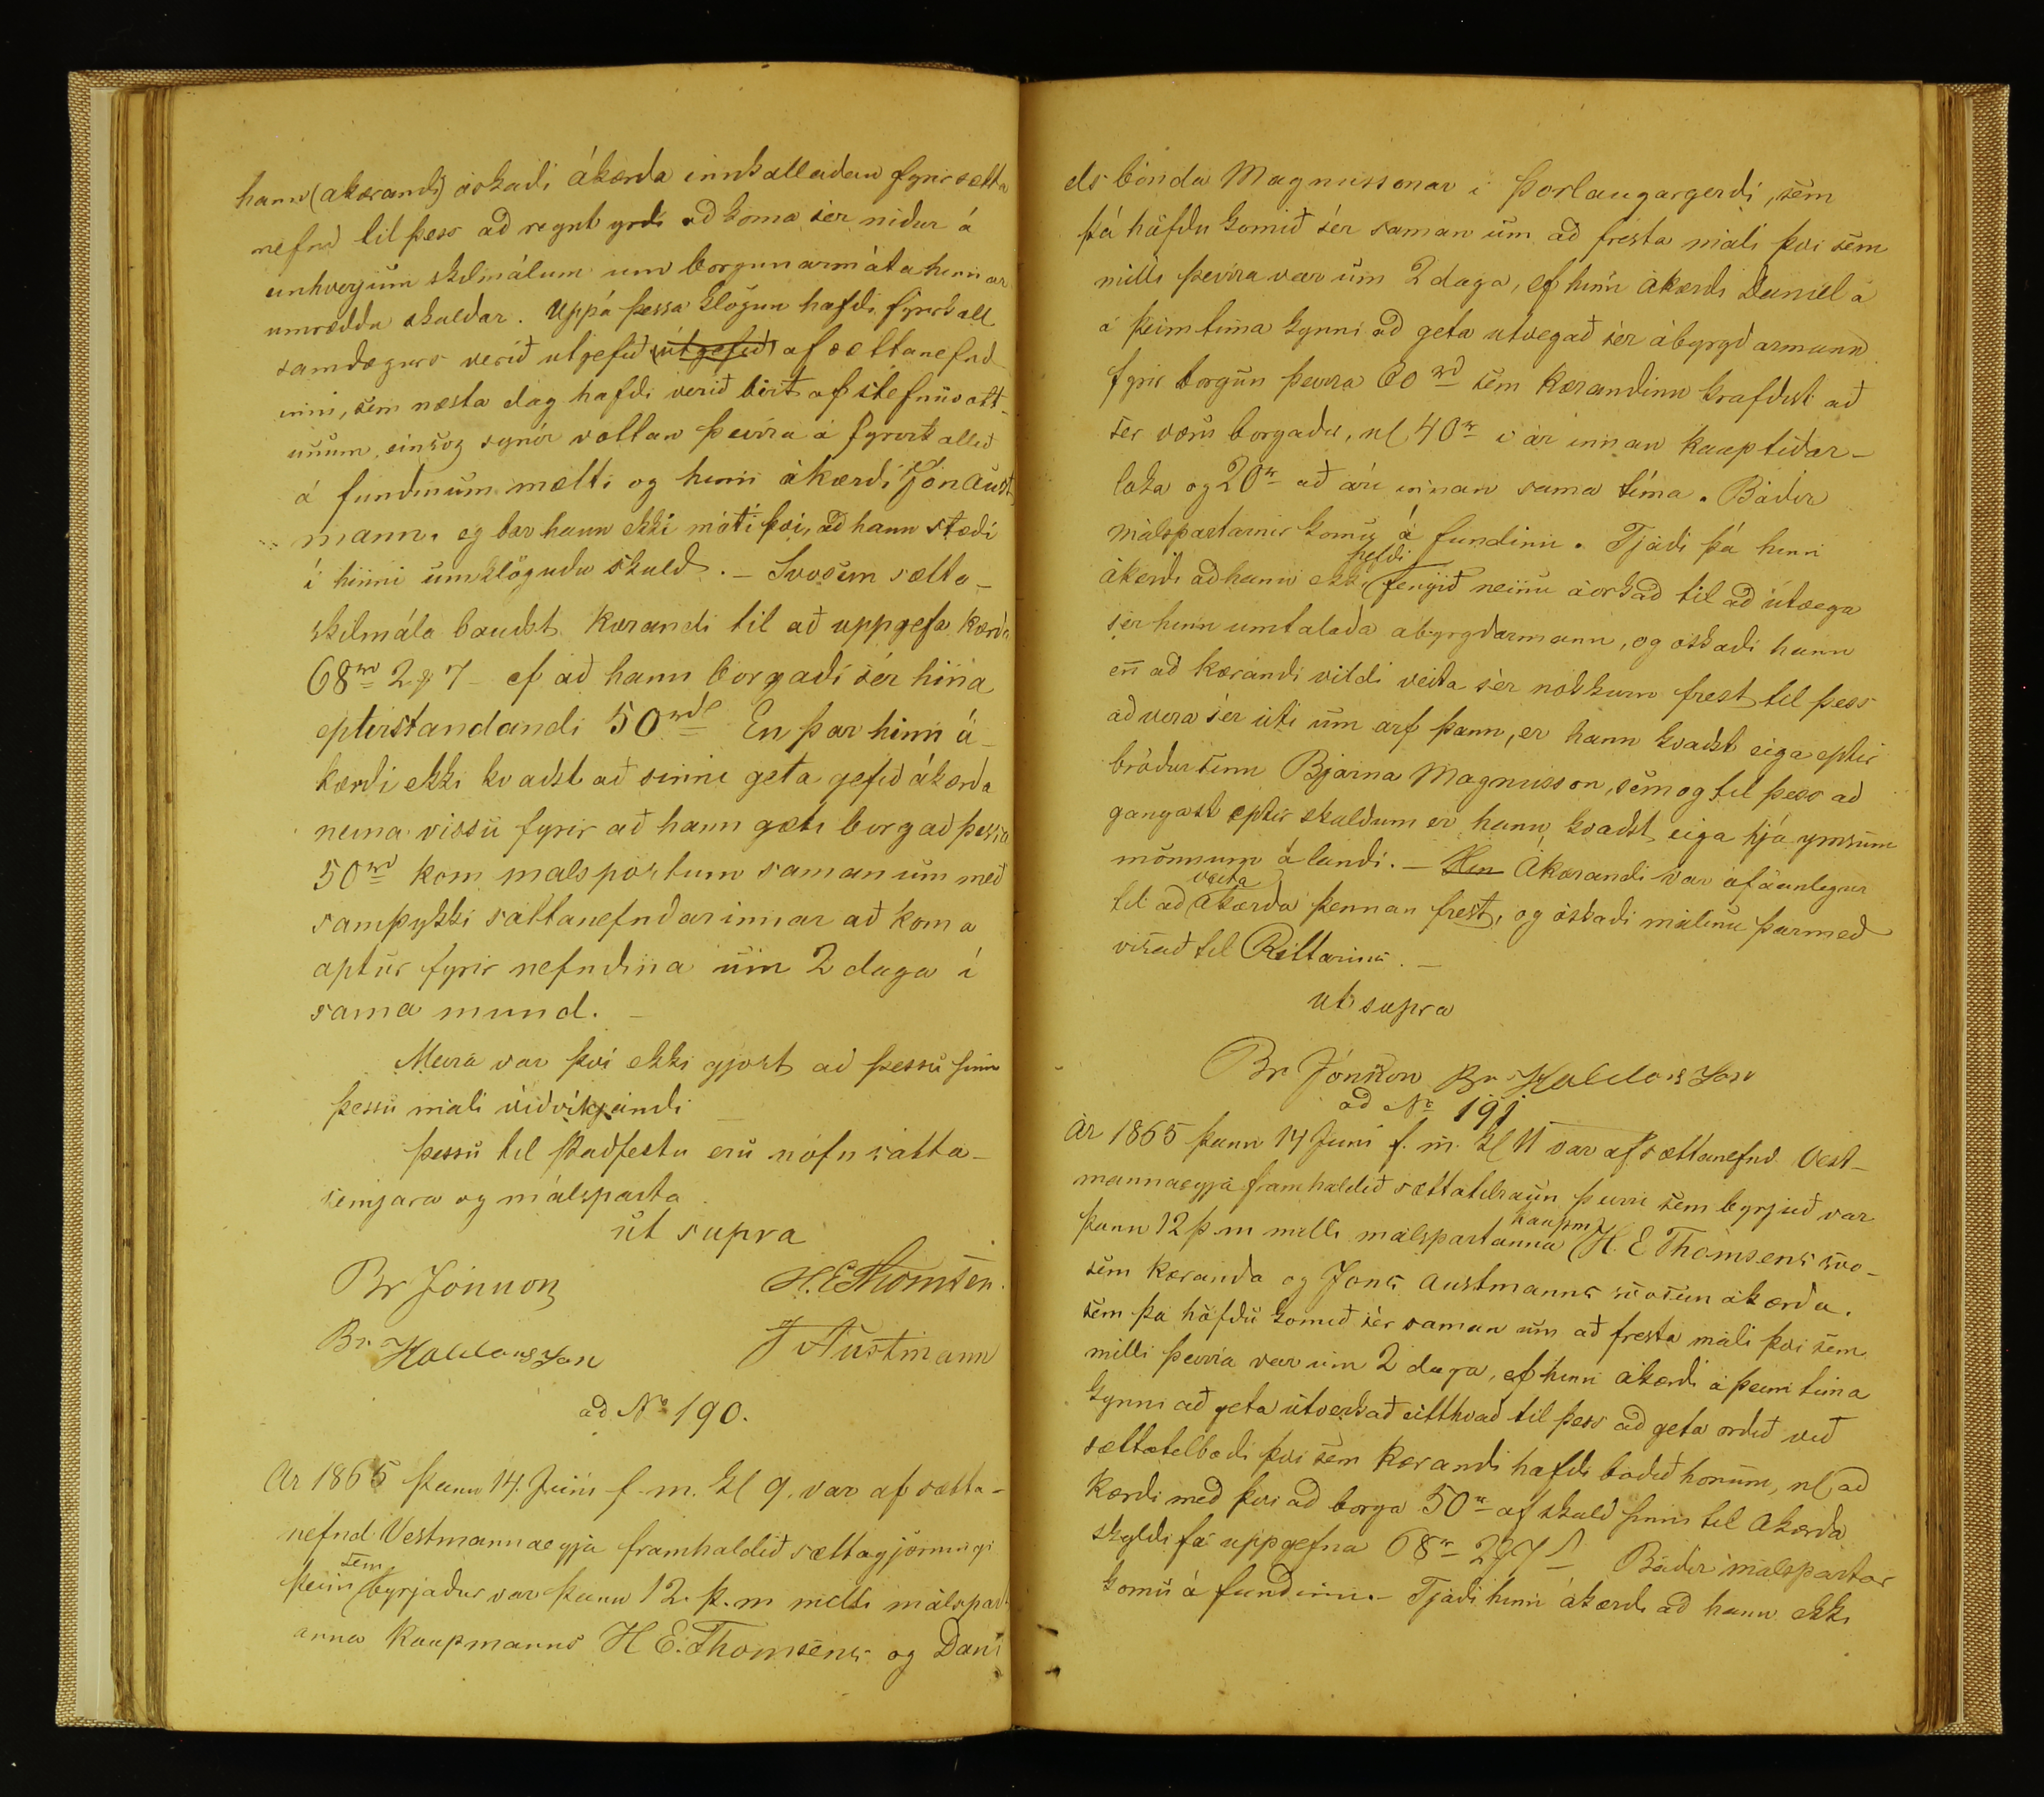 hann (akærandi) óskadi ákærda innkalladan fyrir sætta
nefnd til þess að reynt yrdi ad koma sér nidur á
einhverjum skilmálum um borgunarmáta hinnar
umræddu skuldar. Uppá þessa klögun hafdi fyrirkall
samdægurs verið utgefið (útgefið) af sættanefnd
inni, sem næsta dag hafdi verið birt af stefnuvott-
unum einsog sýnir vottan þeirra á fyrirkallið
á fundinum mætti og hinn ákærdi Jón Aust
mann. eg bar hann ekki móti þvi, ad hann stædi
í hinni umklöguðu skuld. - Svosem sætta-
skilmála baudst kærandi til að uppgefa kærda
68rd 2 7 ef að hann borgaði sér hina
eptirstandandi 50rdl En þar hinn á-
kærdi ekki kvadst að sinni geta gefið ákærda
neina vissu fyrir að hann gæti borgað þessa
50rd kom málspörtum saman um með
samþykki sáttanefndarinnar að koma
aptur fyrir nefndina um 2 daga í
sama mund. -
Meira var því ekki gjört ad þessu sinni
þessu máli viðvíkjandi
Þessu til stadfestu eru nöfn sátta-
semjara og málsparta
út supra
Br Jónsson H. E Thomsen.
Br. Haldorsson J Austmann
ad No 190.
Ar 1865 þann 14. Júni f. m. Kl 9. var af sætta-
nefnd Vestmannaeyja framhaldið sættagjörningi
þeim sem byrjadur var þann 12. þ. m milli málspart
anna Kaupmanns H E. Thomsens og Dani
els bónda Magnussonar i Þorlaugargerdi, sem
þá höfdu komið sér saman um að fresta máli þvi sem
milli þeirra var um 2 daga, ef hinn ákærdi Daniel á
á þeim tíma kynni að geta utvegað sér ábyrgdarmann
fyrir borgun þeirra 60rd sem kærandinn krafdist að
sér væru borgadir, nl 40r i ár innan kauptíðar-
loka og 20r að ári innan sama tíma. Báðir
málspartarnir komu á fundinn. Tjádi þá hinn
ákærdi ad hann ekki hefdi fengið neinu áorkad til ad útvega
sér hinn umtalaða abyrgdarmann, og óskadi hann
en ad kærandi vildi veita sér nokkurn frest til þess
ad vera sér úti um arf þann, er hann kvadst eiga eptir
bródur sinn Bjarna Magnusson, sem og til þess ad
gangast eptir skuldum er hann kvadst eiga hjá ymsum
mönnum á landi. - Hin Ákærandi var ófáanlegur
til ad veita ákærda þennan frest, og óskadi málinu þarmed
visað til Rettarins. -
ut supra
Br Jónsson Br Haldorsson
ad No 191
Ár 1865 þann 14 Juni f. m. Kl 11 var af sættanefnd Vest-
mannaeyja framhaldið sættatilraun þeirri sem byrjuð var
þann 12 þ. m milli málspartanna kaupm H. E Thomsens svo-
sem kæranda og Jóns Austmanns svosem ákærda.
sem þá höfdu komið sér saman um að fresta máli þvi sem
milli þeirra var um 2 daga, ef hinn ákærdi á þeim tíma
kynni að geta útverkað eitthvað til þess ad geta ordið við
sættatilbodi þvi sem kærandi hafdi bodið honum, nl ad
kærdi með þvi ad borga 50r af skuld sinni til ákærda
skyldi fá uppgefna 68r 2 7 Bádir málspartar
komu á fundinn. - Tjádi hinn ákærdi ad hann ekki